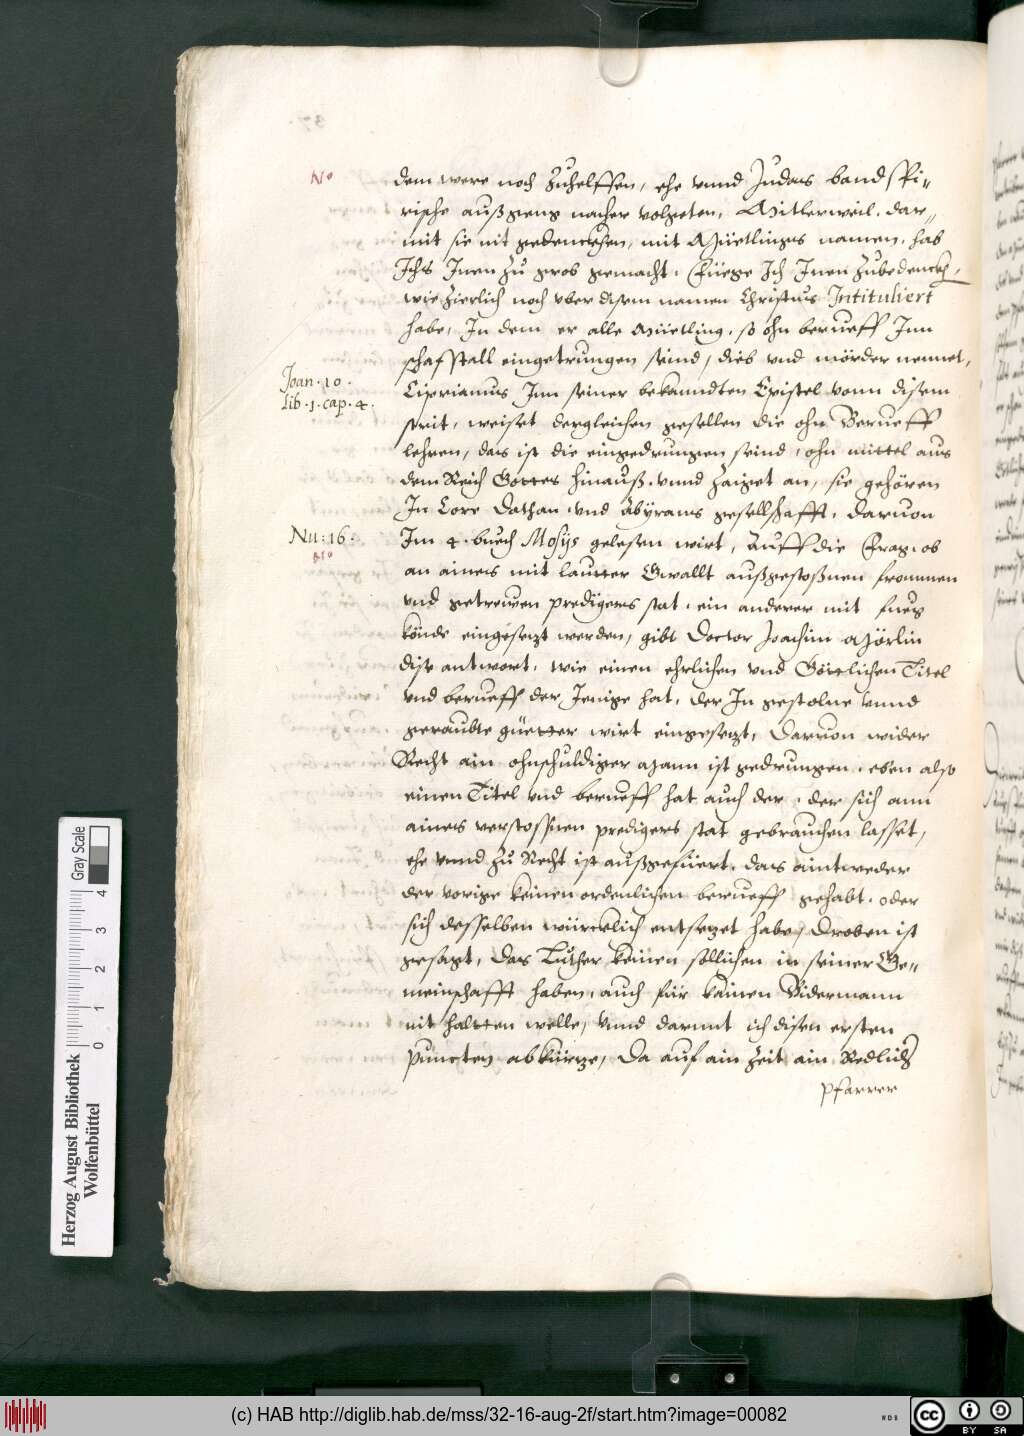 No
dem were noch zuhelffen, ehe vnnd Judas bandspi„
rische außgeng nacher volgeten. Mitlerweil. dar„
mit sie nit gedenckhen, mit Müetlings namen. hab
Ichs Inen zu grob gemacht. Füege Ich Inen zubedenckh,
wie zierlich noch vber disem namen Christus Intituliert
habe, In dem er alle Müetling, so ohn berueff Inn
schafstall eingetrungen seind, dieb vnd mörder nennet,
Joan. 10.
Ciprianus Inn seiner bekanndten Epistel vonn disem
lib. 1. cap. 4.
strit, weiset dergleichen gesellen die ohn Berueff
lehren, das ist die eingedrungen seind, ohn mittel aus
dem Reich Gottes hinauß. vnnd zaiget an, sie gehören
In Core Dathan. vnd Abyrams gesellschafft. daruon
Nu: 16.
Im 4. buech Mosys gelesen wirt, Auff die Frag. ob
No
an aines mit lautter Gwallt außgestoßnen frommen
vnd getrewen predigers stat. ein anderer mit fueg
könde eingesezt werden, gibt Doctor Joachim Mörlin
dise antwort. wie einen ehrlichen vnd Göttlichen Titel
vnd berueff der Jenige hat, der In gestolne vnnd
geraubte güetter wirt eingesezt, Daruon wider
Recht ain ohnschuldiger Mann ist gedrungen. eben also
einen Titel vnd berueff hat auch der. der sich ann
aines verstossnen predigers stat gebrauchen lasset,
ehe vnnd zu Recht ist außgefüert. das aintweder
der vorige keinen ordenlichen berueff gehabt. oder
sich desselben würcklich entsezet habe, Droben ist
gesagt, das Luther keinen sollichen in seiner Ge„
meinschafft haben, auch für kainen Bidermann
nit haltten welle, Vnnd darmit ich disen ersten
puncten abkürze, Da auf ain zeit ain Redlichs
pfarrer
Herzog August Bibliothek
Wolfenbüttel
Gray Scale
0 1 2 3 4
(c) HAB http://diglib.hab.de/mss/32-16-aug-2f/start.htm?image=00082
WDB
cc BY SA